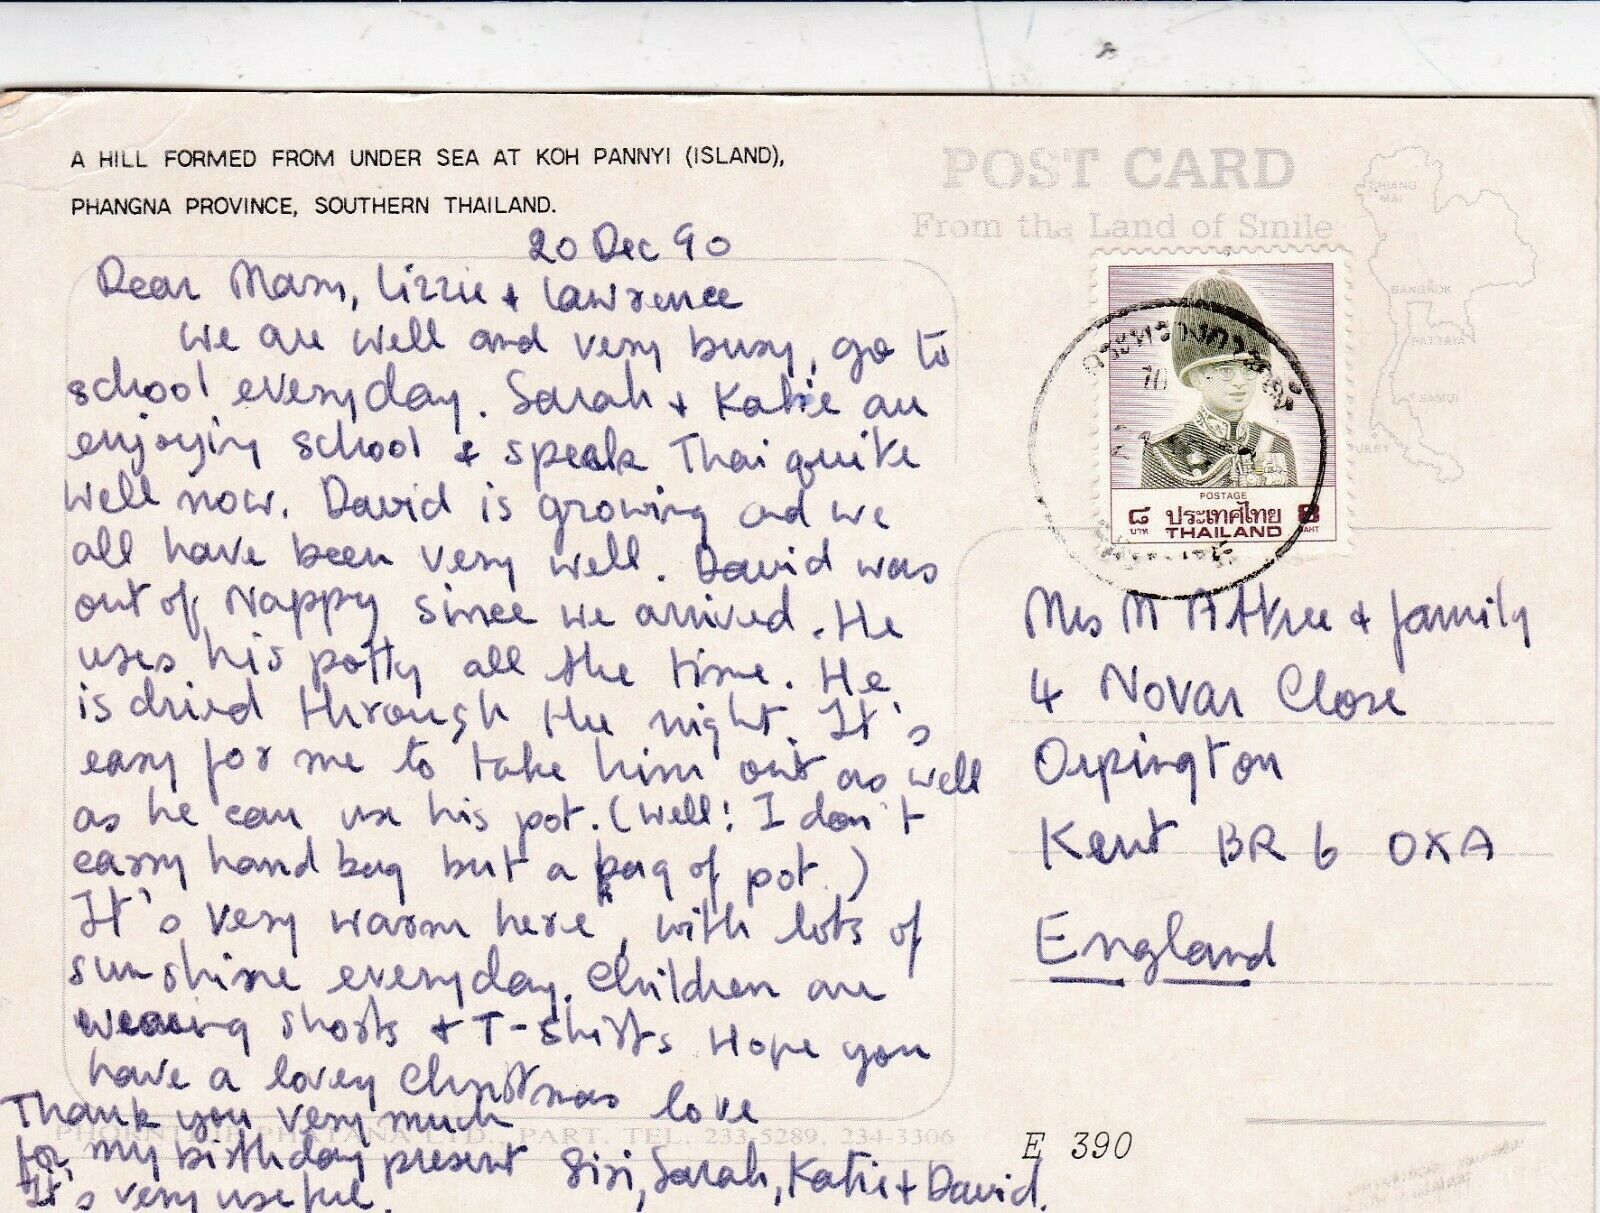 A HILL FORMED FROM UNDER SEA AT KOH PANNYI (ISLAND),
PHANGNA PROVINCE, SOUTHERN THAILAND.
20 Dec 90
Dear Mam, Lizzie + Lawrence
We are well and very busy, go to
school everyday. Sarah + Katie are
enjoying school & speak Thai quite
well now. David is growing and we
all have been very well. David was
out of Nappy since we arrived. He
uses his potty all the time. He
is dried through the night. It's
easy for me to take him out as well
as he can use his pot. (Well! I don't
carry hand bag but a bag of pot.)
It's very warm here, with lots of
sunshine everyday. Children are
wearing shorts + T-shirts Hope you
have a lovey Christmas love
Thank you very much
for my birthday present Sisi, Sarah, Katie + David.
It's very useful.
PHORNTHIP PHATANA LTD., PART. TEL. 233-5289, 234-3306
E 390
POST CARD
From the Land of Smile
CHIANG
MAI
BANGKOK
PATTAYA
SAMUI
POSTAGE
๘ ประเทศไทย 8
บาท THAILAND BAHT
Mrs M Attree + family
4 Novar Close
Orpington
Kent BR 6 0XA
England